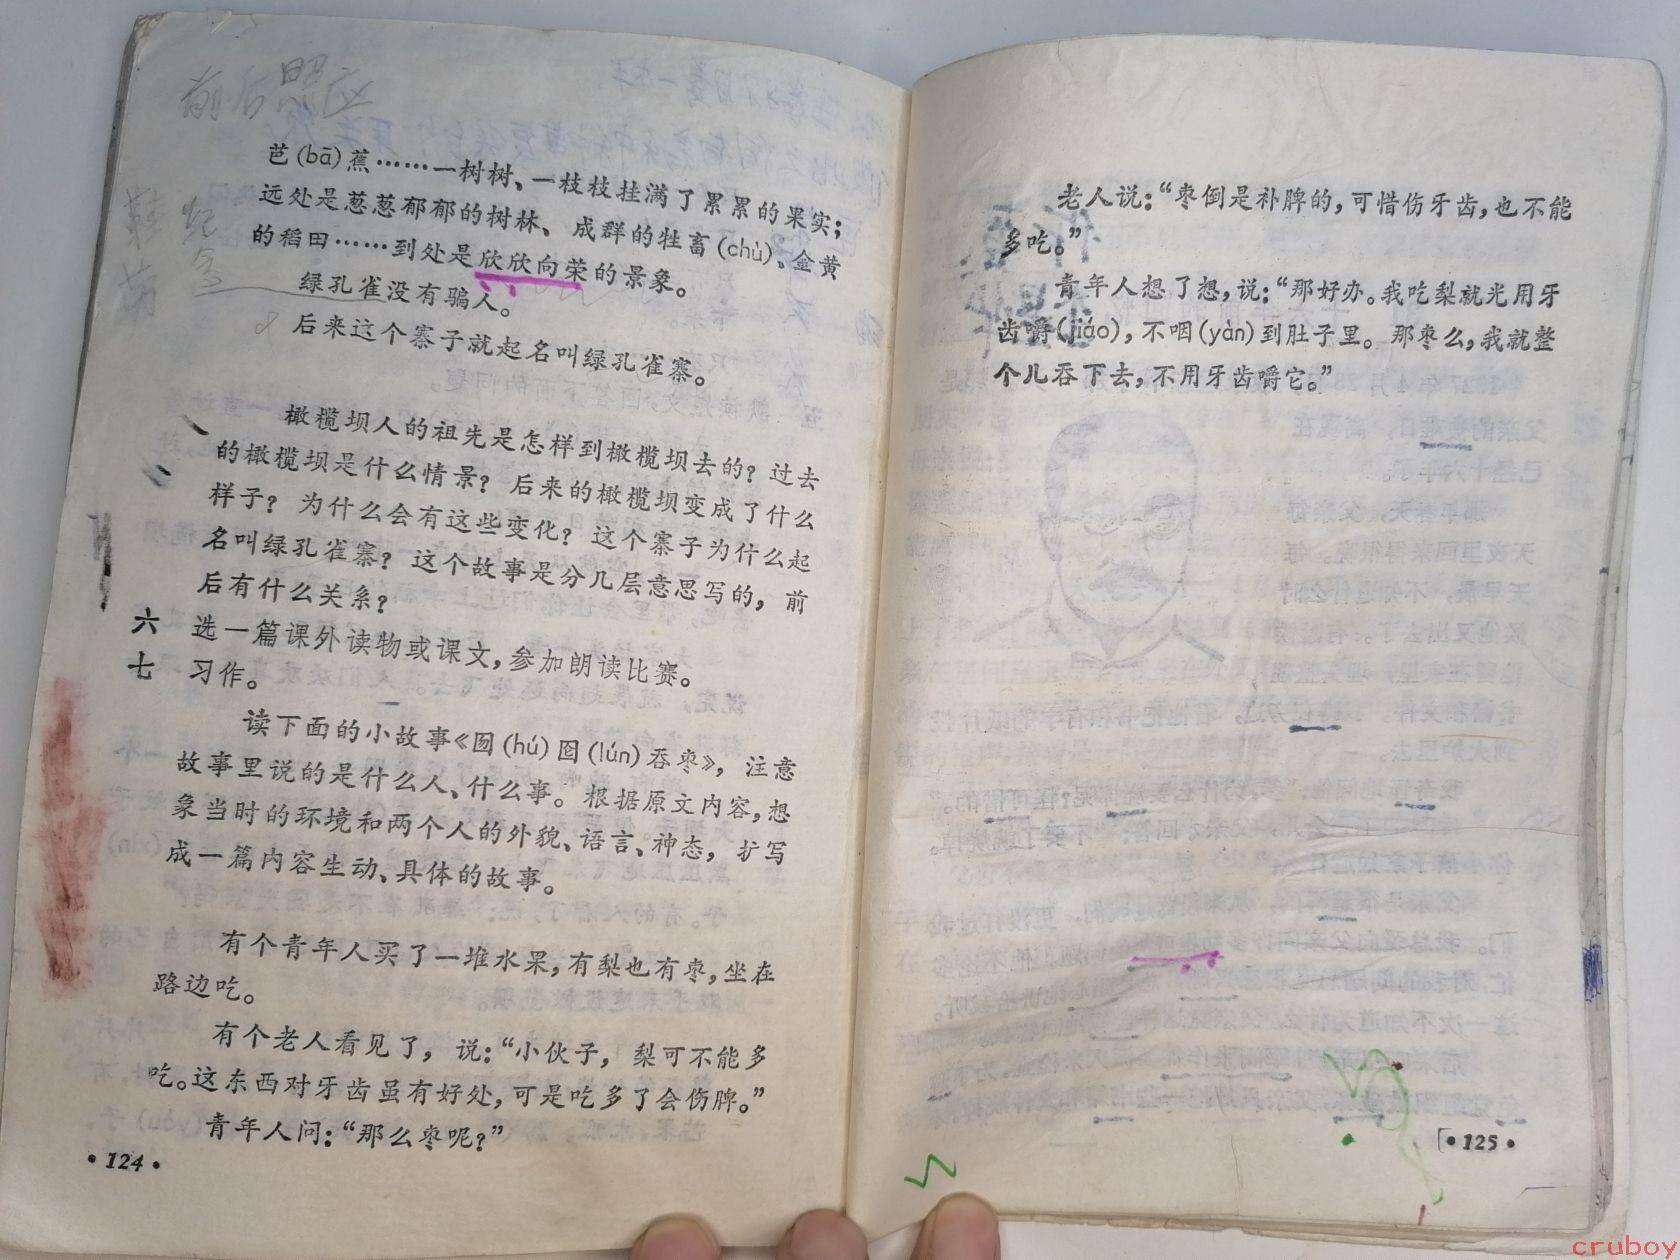 前后照应
芭(bā)蕉……一树树、一枝枝挂满了累累的果实；
远处是葱葱郁郁的树林、成群的牲畜(chù)、金黄
的稻田……到处是欣欣向荣的景象。
绿孔雀没有骗人。
后来这个寨子就起名叫绿孔雀寨。
橄榄坝人的祖先是怎样到橄榄坝去的？过去
的橄榄坝是什么情景？后来的橄榄坝变成了什么
样子？为什么会有这些变化？这个寨子为什么起
名叫绿孔雀寨？这个故事是分几层意思写的，前
后有什么关系？
六 选一篇课外读物或课文，参加朗读比赛。
七 习作。
读下面的小故事《囫(hú)囵(lún)吞枣》，注意
故事里说的是什么人、什么事。根据原文内容，想
象当时的环境和两个人的外貌、语言、神态，扩写
成一篇内容生动、具体的故事。
有个青年人买了一堆水果，有梨也有枣，坐在
路边吃。
有个老人看见了，说：“小伙子，梨可不能多
吃。这东西对牙齿虽有好处，可是吃多了会伤脾。”
青年人问：“那么枣呢？”
·124·
老人说：“枣倒是补脾的，可惜伤牙齿，也不能
多吃。”
青年人想了想，说：“那好办。我吃梨就光用牙
齿嚼(jiáo)，不咽(yàn)到肚子里。那枣么，我就整
个儿吞下去，不用牙齿嚼它。”
·125·
cruboy